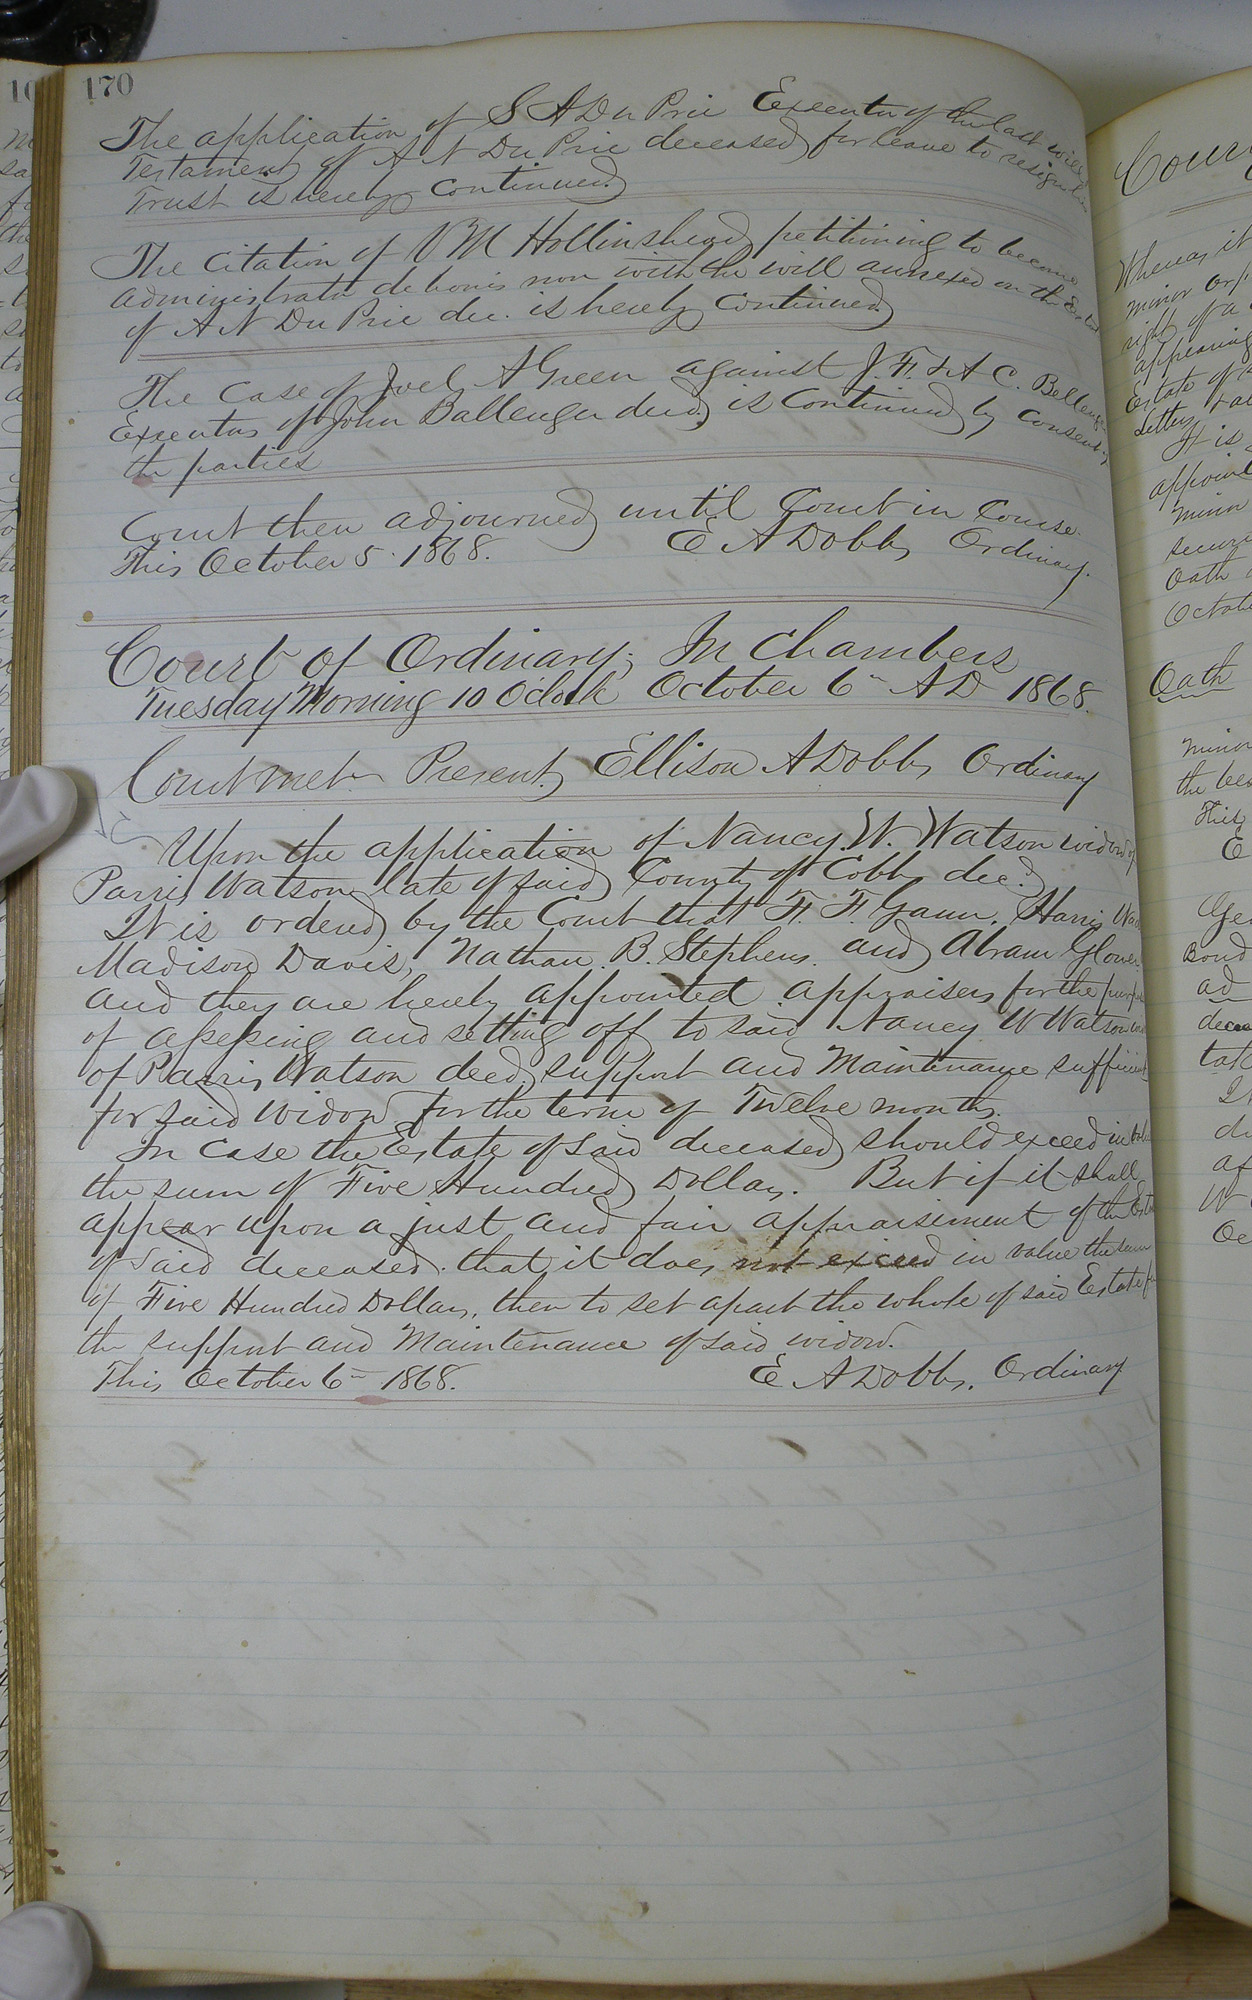 170
The application of S A Du Prie Executor of the last will &
Testament of A N Du Prie deceased for leave to resign his
Trust is hereby continued
The citation of V M Hollinshead petitioning to become
administrator de bonis non with the will annexed on the Estate
of A N Du Prie dec. is hereby continued
The case of Joel A Green against J. F. & A C. Bellenger
Executors of John Ballenger decd, is continued by consent of
the parties
Court then adjourned until Court in Course.
This October 5. 1868. E A Dobbs Ordinary.
Court of Ordinary; In Chambers
Tuesday Morning 10 O'clock October 6" A D 1868.
Court met. Present, Ellison A Dobbs Ordinary
Upon the application of Nancy. W. Watson widow of
Parris Watson late of said County of Cobb, dec.d
It is ordered by the Court that F. F. Gann, Harris
Madison Davis, Nathan. B. Stephens. and Abram Glover
and they are hereby appointed appraisers for the purpose
of assessing and setting off to said Nancy W Watson
of Parris Watson decd, support and Maintenance sufficient
for said widow for the term of Twelve months.
In case the Estate of said deceased should exceed in value
the sum of Five Hundred Dollars. But if it shall
appear upon a just and fair appraisement of the Estate
of said deceased. that it does not exceed in value the sum
of Five Hundred Dollars, then to set apart the whole of said Estate for
the support and Maintenance of said widow.
This October 6" 1868. E A Dobbs, Ordinary
Whereas it
minor
right of a
appearing
Estate of
Letters
It is
minor
Oath
Oath
minor
This
E
Bond
ad
It
W